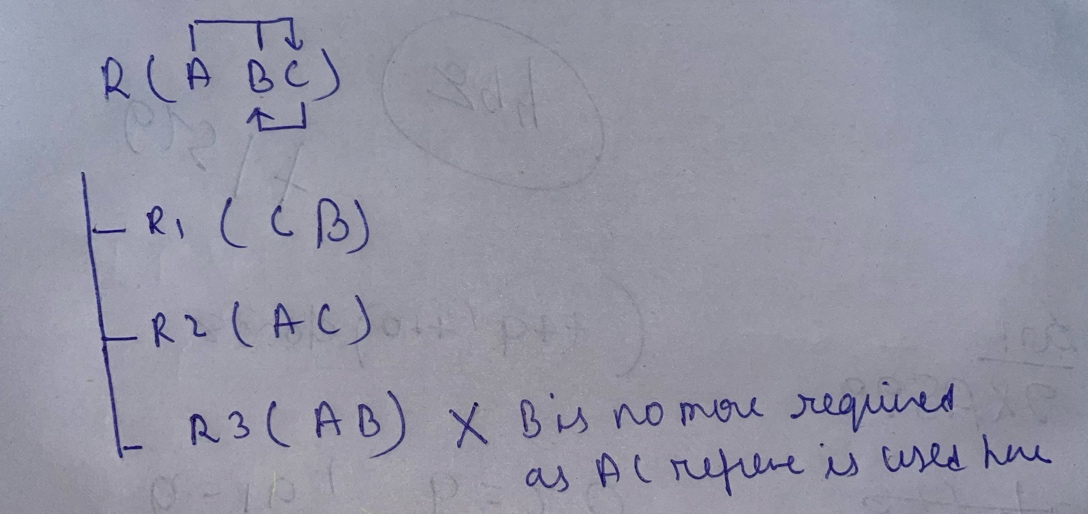 R ( A B C )
R1 ( C B )
R2 ( A C )
R3 ( A B ) X B is no more required
as AC is used here